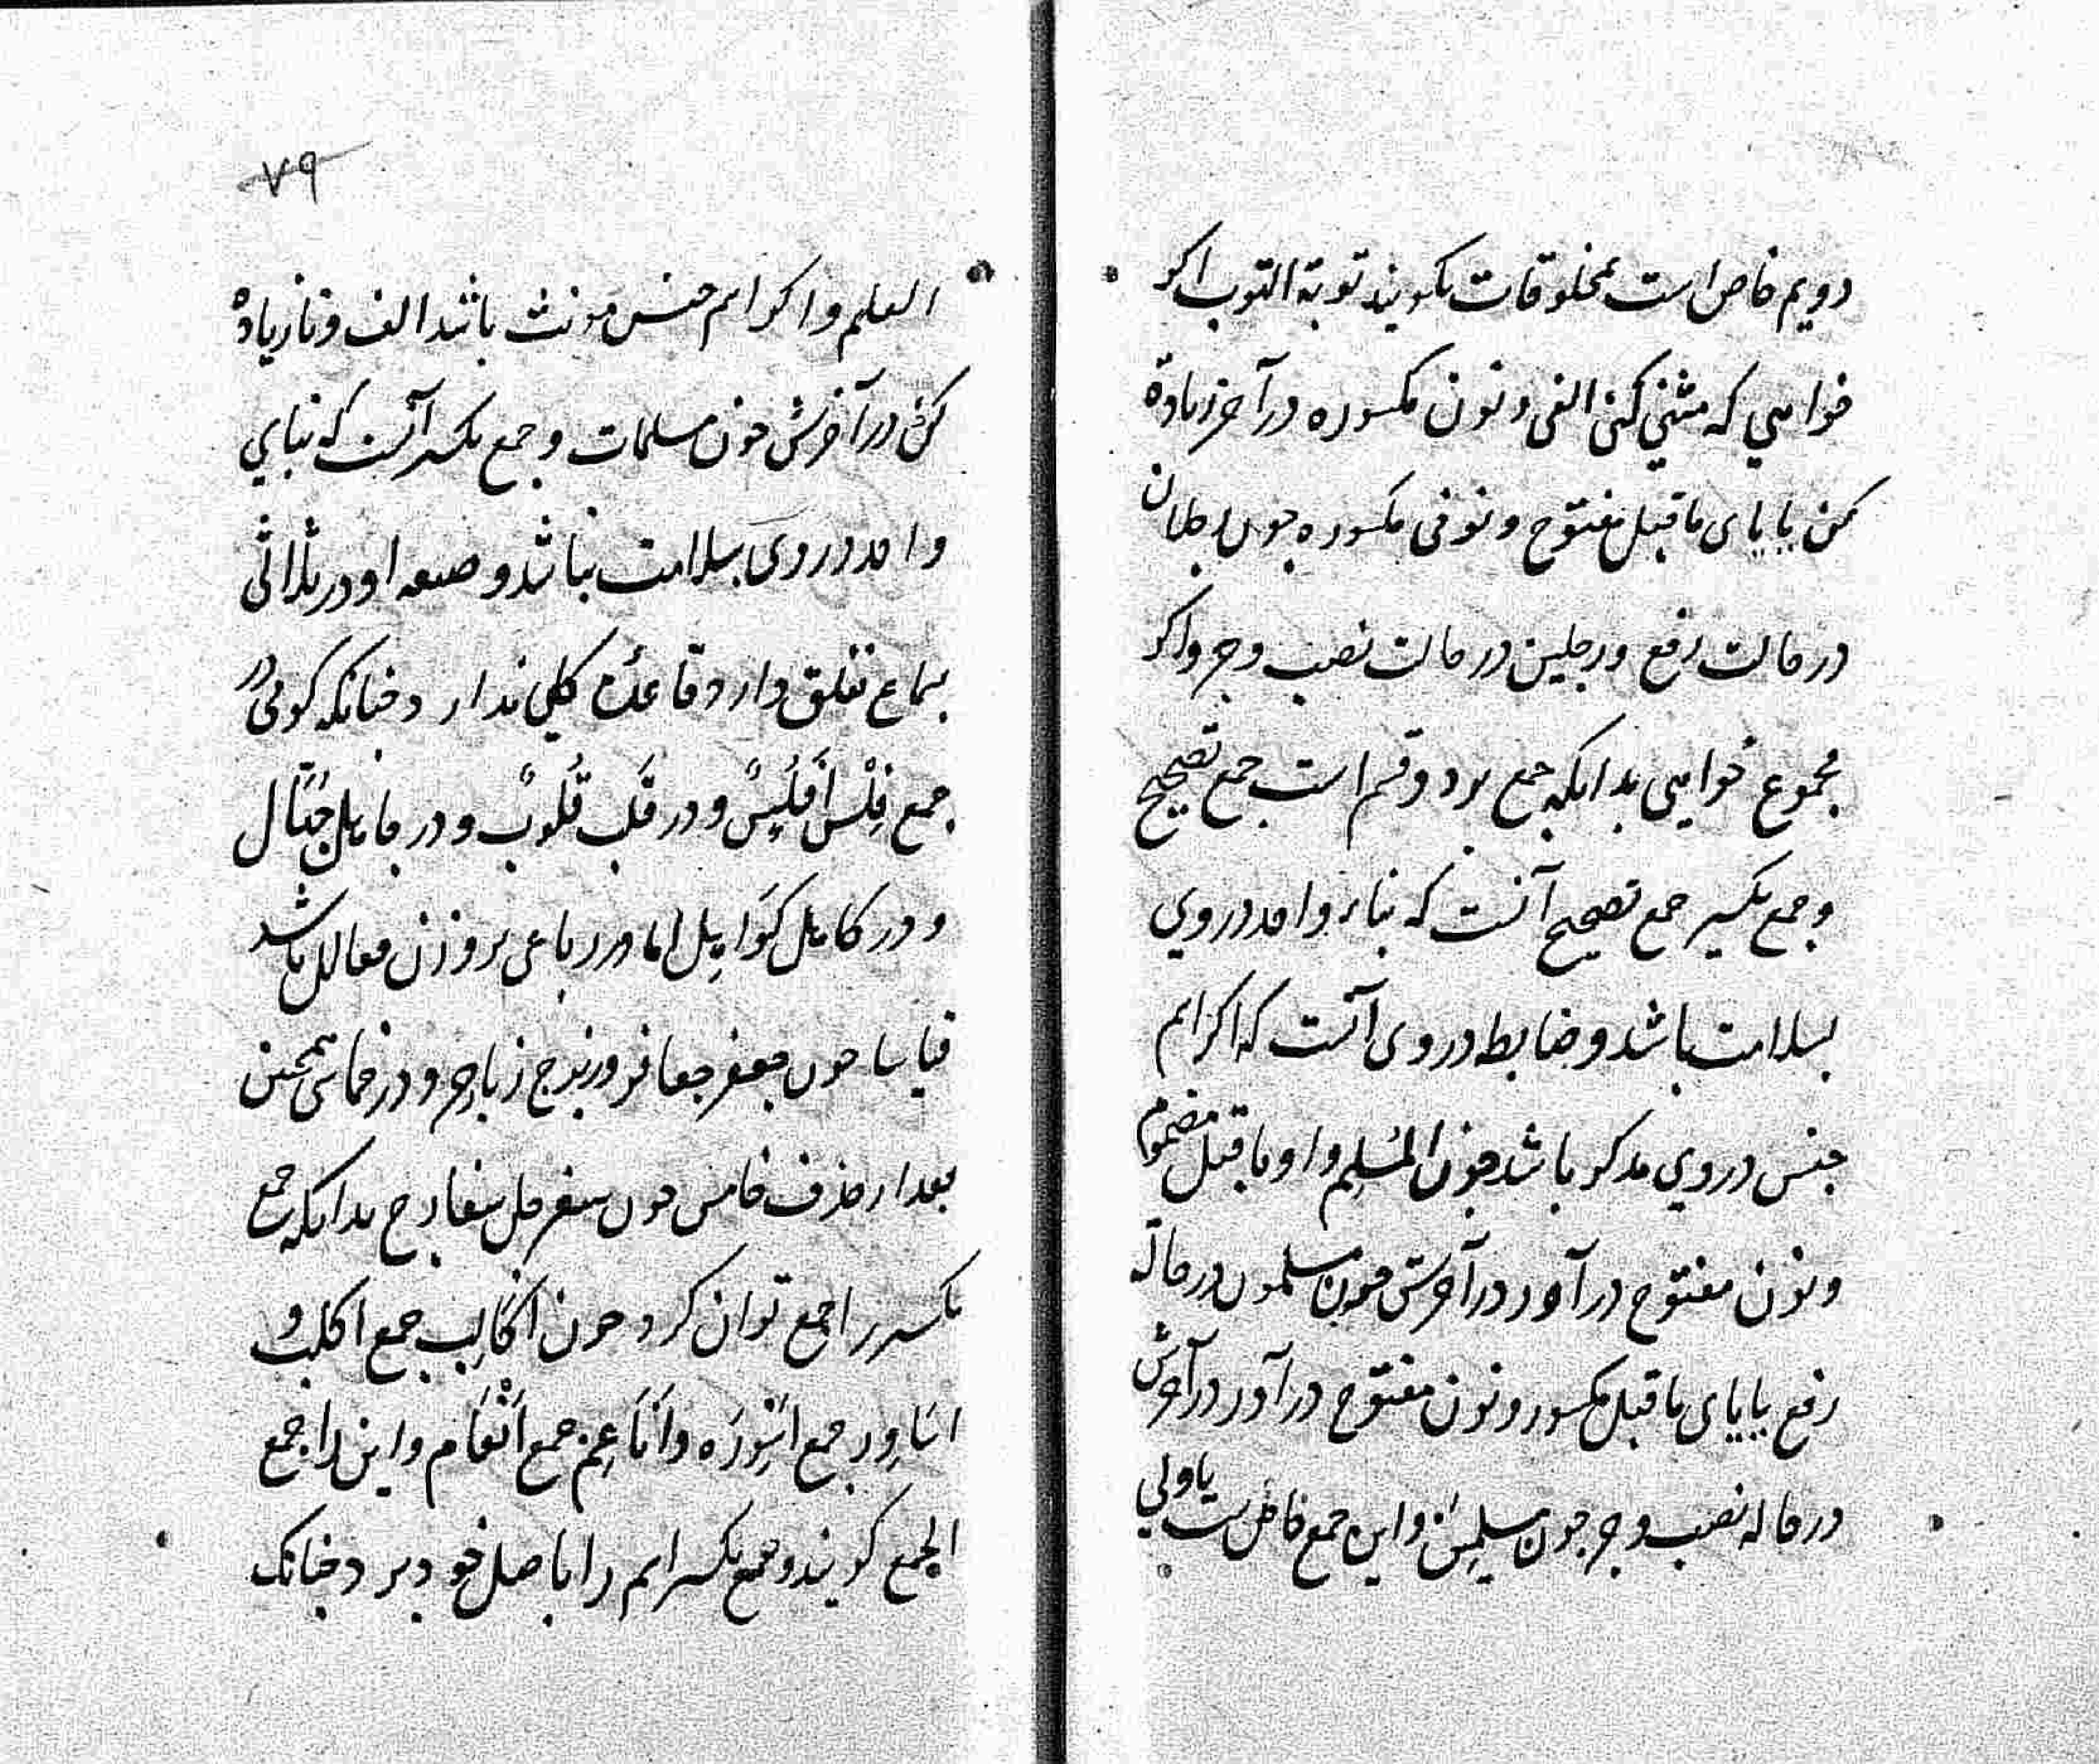 دویم خاص است بمخلوقات بکویند توبة التوب اکر
خواهی که مثنی کنی الفی و نون مکسوره در آخر زیادة
کن یا یای ما قبل مفتوح و نونی مکسوره چون رجلان
در حالت رفع و رجلین در حالت نصب و جر و اکر
مجموع خواهی بدانکه جمع بر دو قسم است جمع تصحیح
و جمع تکسیر جمع تصحیح آنست که بناء واحد در وی
بسلامت باشد و ضابطه در وی آنست که اکر اسم
جنس در وی مذکر باشد چون المسلم واو ما قبل مضموم
و نون مفتوح در آور در آخرش چون مسلمون در حالة
رفع یا یای ما قبل مکسور و نون مفتوح در آور در آخرش
در حاله نصب و جر چون مسلمین و این جمع خاص است یاولی
۷۹
العلم و اکر اسم جنس مونث باشد الف و تا زیاده
کنی در آخرش چون مسلمات و جمع تکسیر آنست که بنای
واحد در وی بسلامت نباشد و صیغه او در ثلاثی
بسماع تعلق دارد و قاعده کلی ندارد چنانکه کوئی در
جمع فلس افلس و در قلب قلوب و در جاهل جهّال
و در کاهل کواهل اما در رباعی بر وزن فعالل باشد
قیاسا چون جعفر جعافر و زبرج زبارج و در خماسی همچنین
بعد از حذف خامس چون سفرجل سفارج بدانکه جمع
تکسیر را جمع توان کرد چون اکالب جمع اکلب و
اساور جمع اسوره و اناعم جمع انعام و این را جمع
الجمع کویند و جمع تکسیر اسم را باصل خود برد چنانک